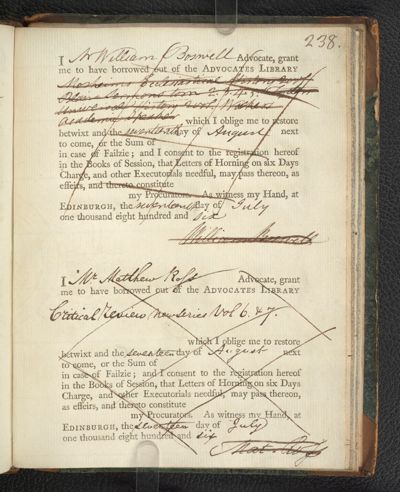 238.
I Mr William Boswell Advocate, grant
me to have borrowed out of the ADVOCATES LIBRARY
Mosheims Ecclesiastical History
Universal History Walkers
Academy Speaker
, which I oblige me to restore
betwixt and the seventeenth day of August next
to come, or the Sum of
in case of Failzie; and I consent to the registration hereof
in the Books of Session, that Letters of Horning on six Days
Charge, and other Executorials needful, may pass thereon, as
effeirs, and thereto constitute
my Procurators. As witness my Hand, at
EDINBURGH, the seventeenth day of July
one thousand eight hundred and six
William Boswell
I Mr Matthew Ross Advocate, grant
me to have borrowed out of the ADVOCATES LIBRARY
Critical Review new series Vol 6. & 7.
which I oblige me to restore
betwixt and the seventeen day of August next
to come, or the Sum of
in case of Failzie; and I consent to the registration hereof
in the Books of Session, that Letters of Horning on six Days
Charge, and other Executorials needful, may pass thereon, as
effeirs, and thereto constitute
my Procurators. As witness my Hand, at
EDINBURGH, the seventeen day of July
one thousand eight hundred and six
Mat. Ross